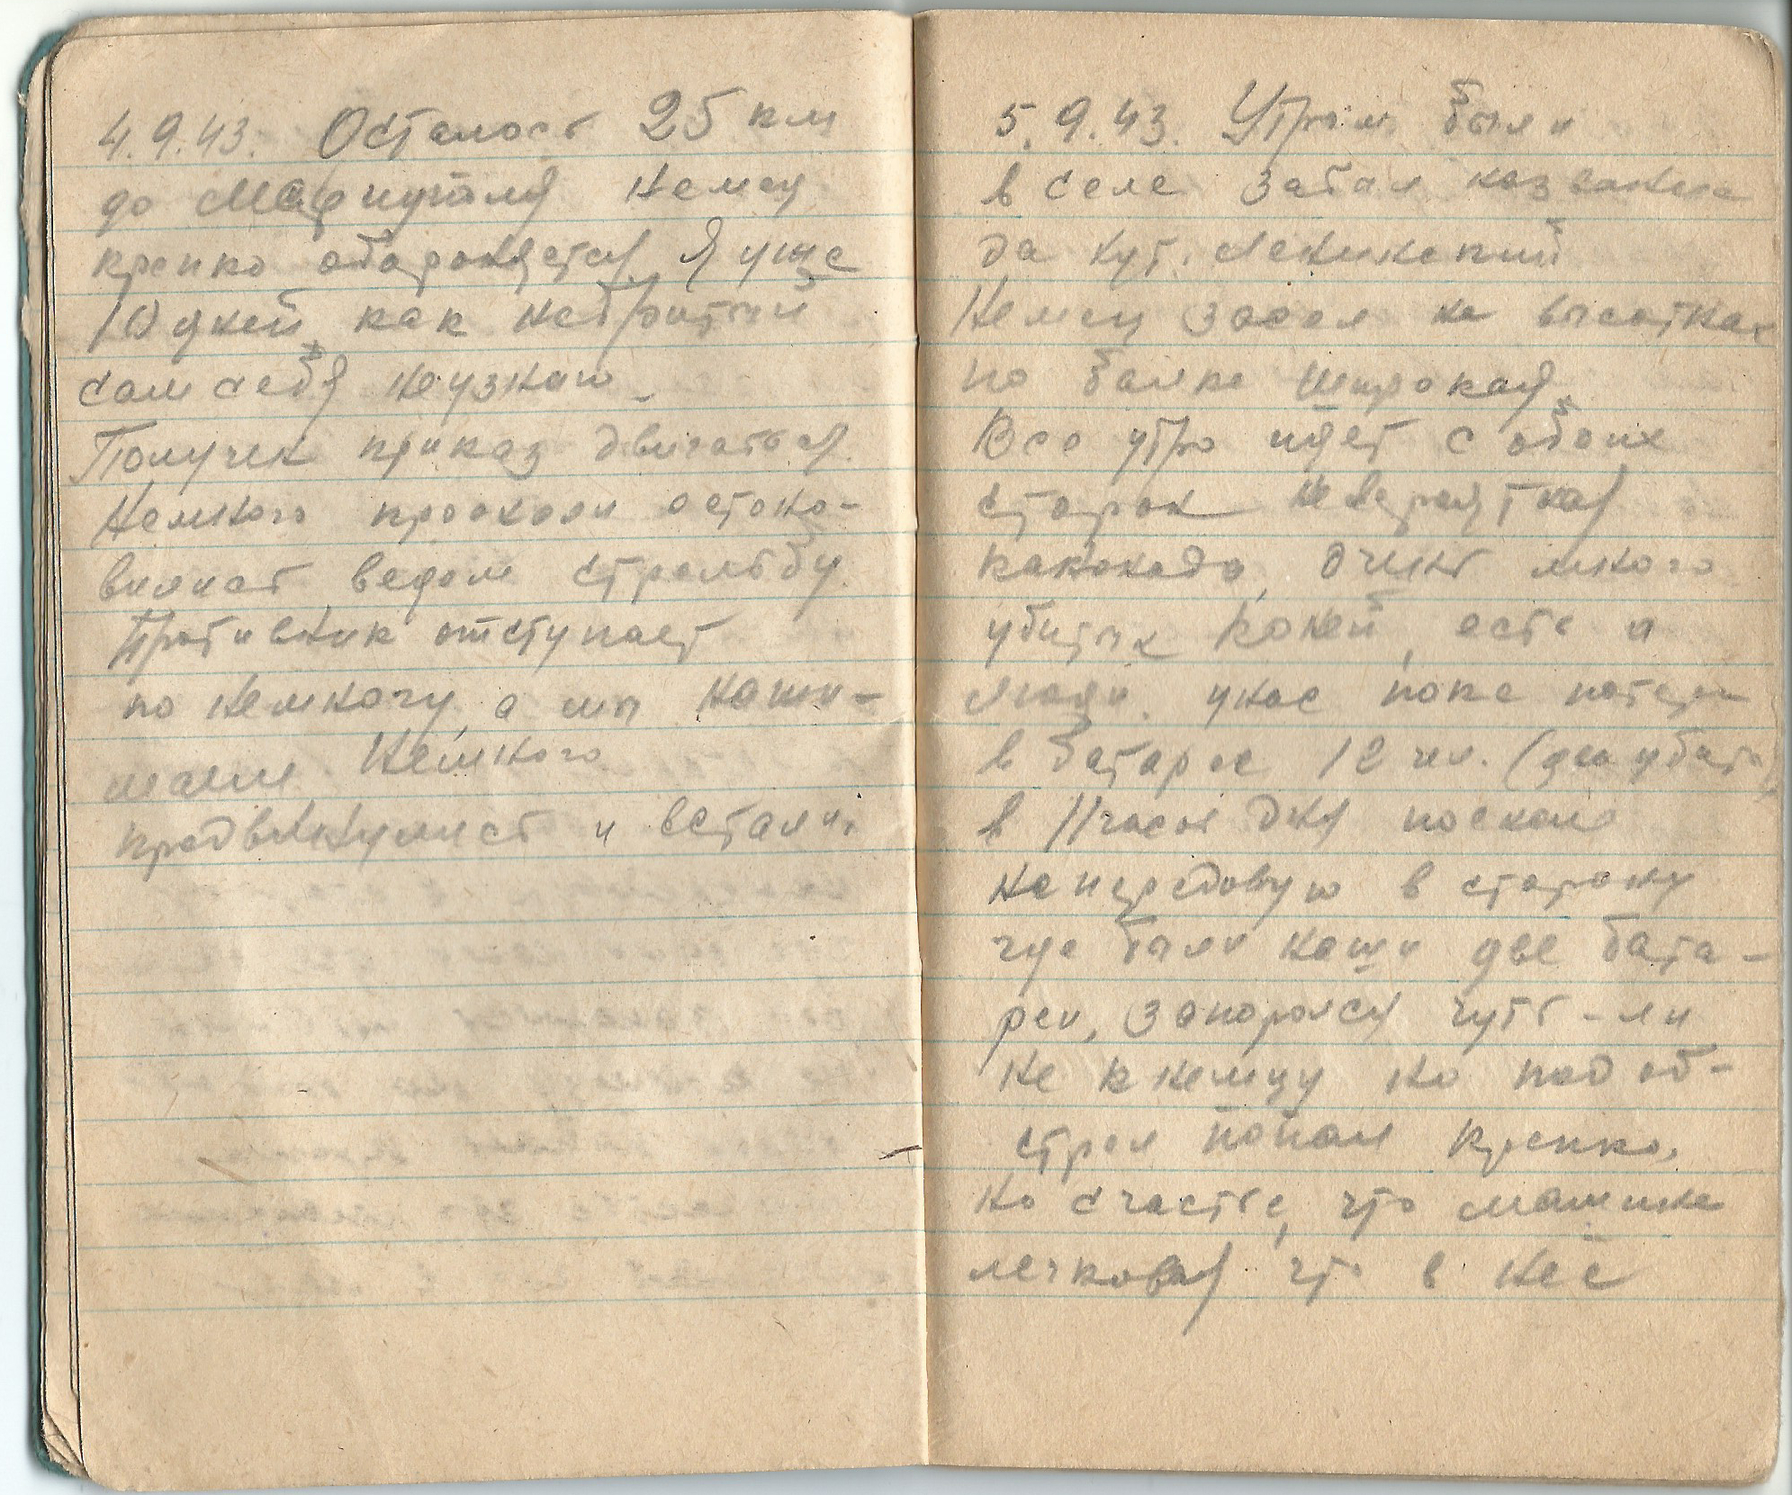 4.9.43. Осталось 25 км
до Мариуполя Немец
крепко обороняется. Я уже
10 дней, как небритый
сам себя не узнаю.
Получен приказ двигаться.
Немного проехали остано-
вились, ведем стрельбу.
Противник отступает
по немногу, а мы нажи-
маем. Немного
продвинулись и встали.
5.9.43. Утром были
в селе забыл название
да хут. Ленинский
Немец засел на высотках
по балке Широкая,
Все утро идет с обоих
сторон невероятная
канонада, очень много
убитых коней, есть и
люди. у нас пока потери
в батарее 12 чел. (два убиты)
в 11 часов дня поехали
на передовую в сторону
где были наши две бата-
реи, запоролся чуть-ли
не к немцу но под об-
стрел попал крепко.
но счастье, что машина
легковая что в неё